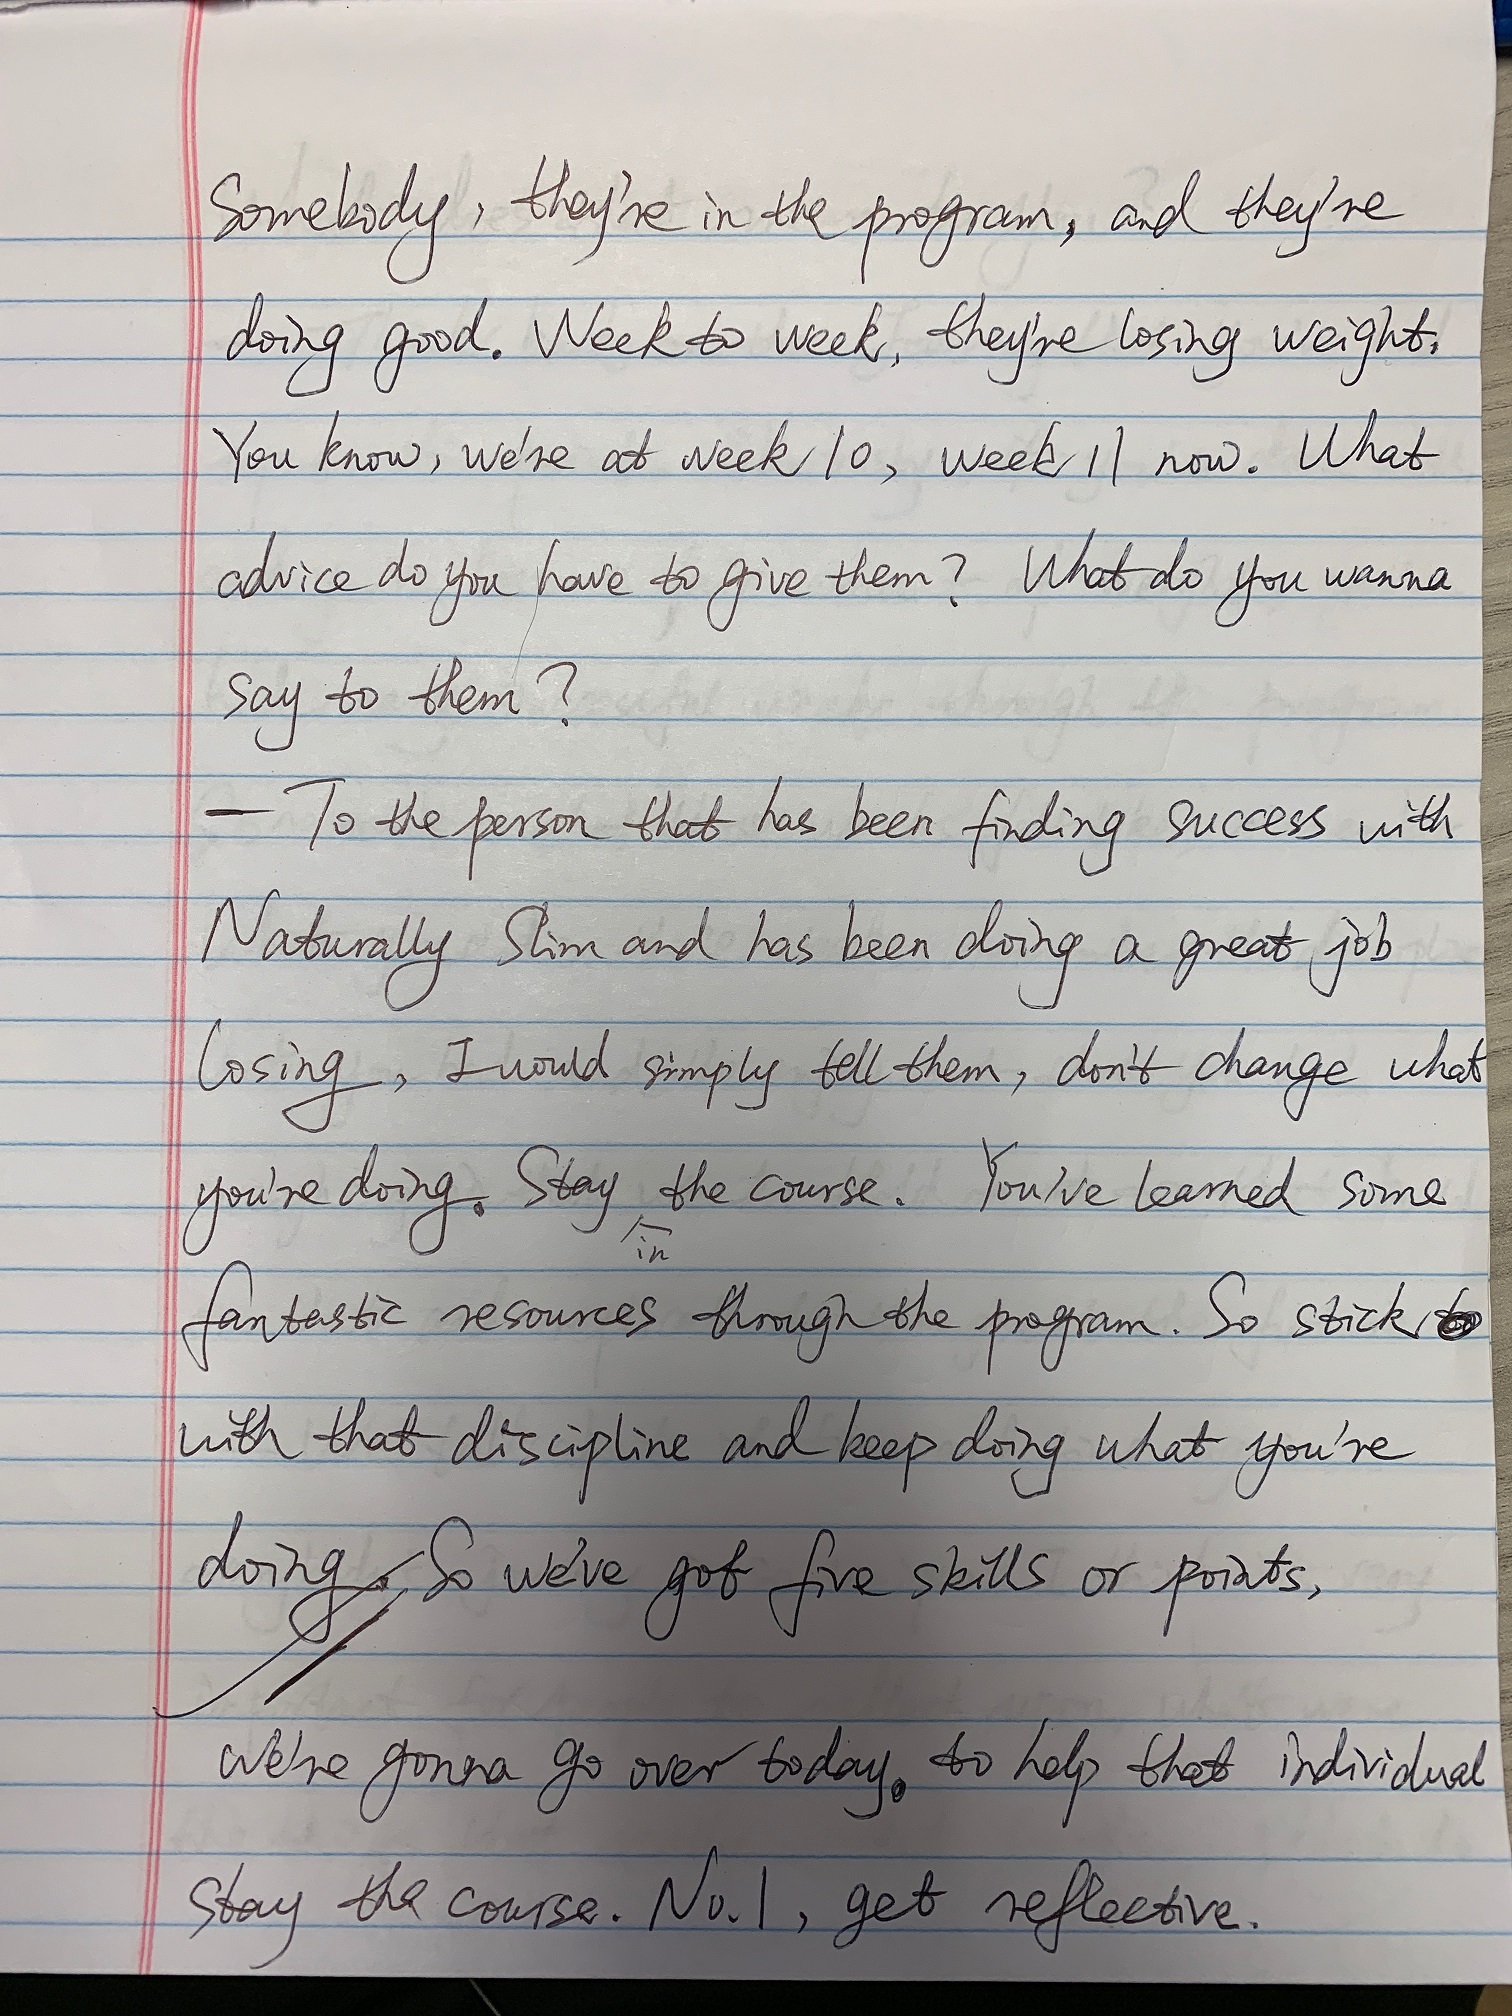 Somebody, they're in the program, and they're
doing good. Week to week, they're losing weight.
You know, we're at week 10, week 11 now. What
advice do you have to give them? What do you wanna
say to them?
— To the person that has been finding success with
Naturally Slim and has been doing a great job
losing, I would simply tell them, don't change what
you're doing. Stay the course. You've learned some
in
fantastic resources through the program. So stick
with that discipline and keep doing what you're
doing. So we've got five skills or points,
we're gonna go over today. to help that individual
stay the course. No.1, get reflective.